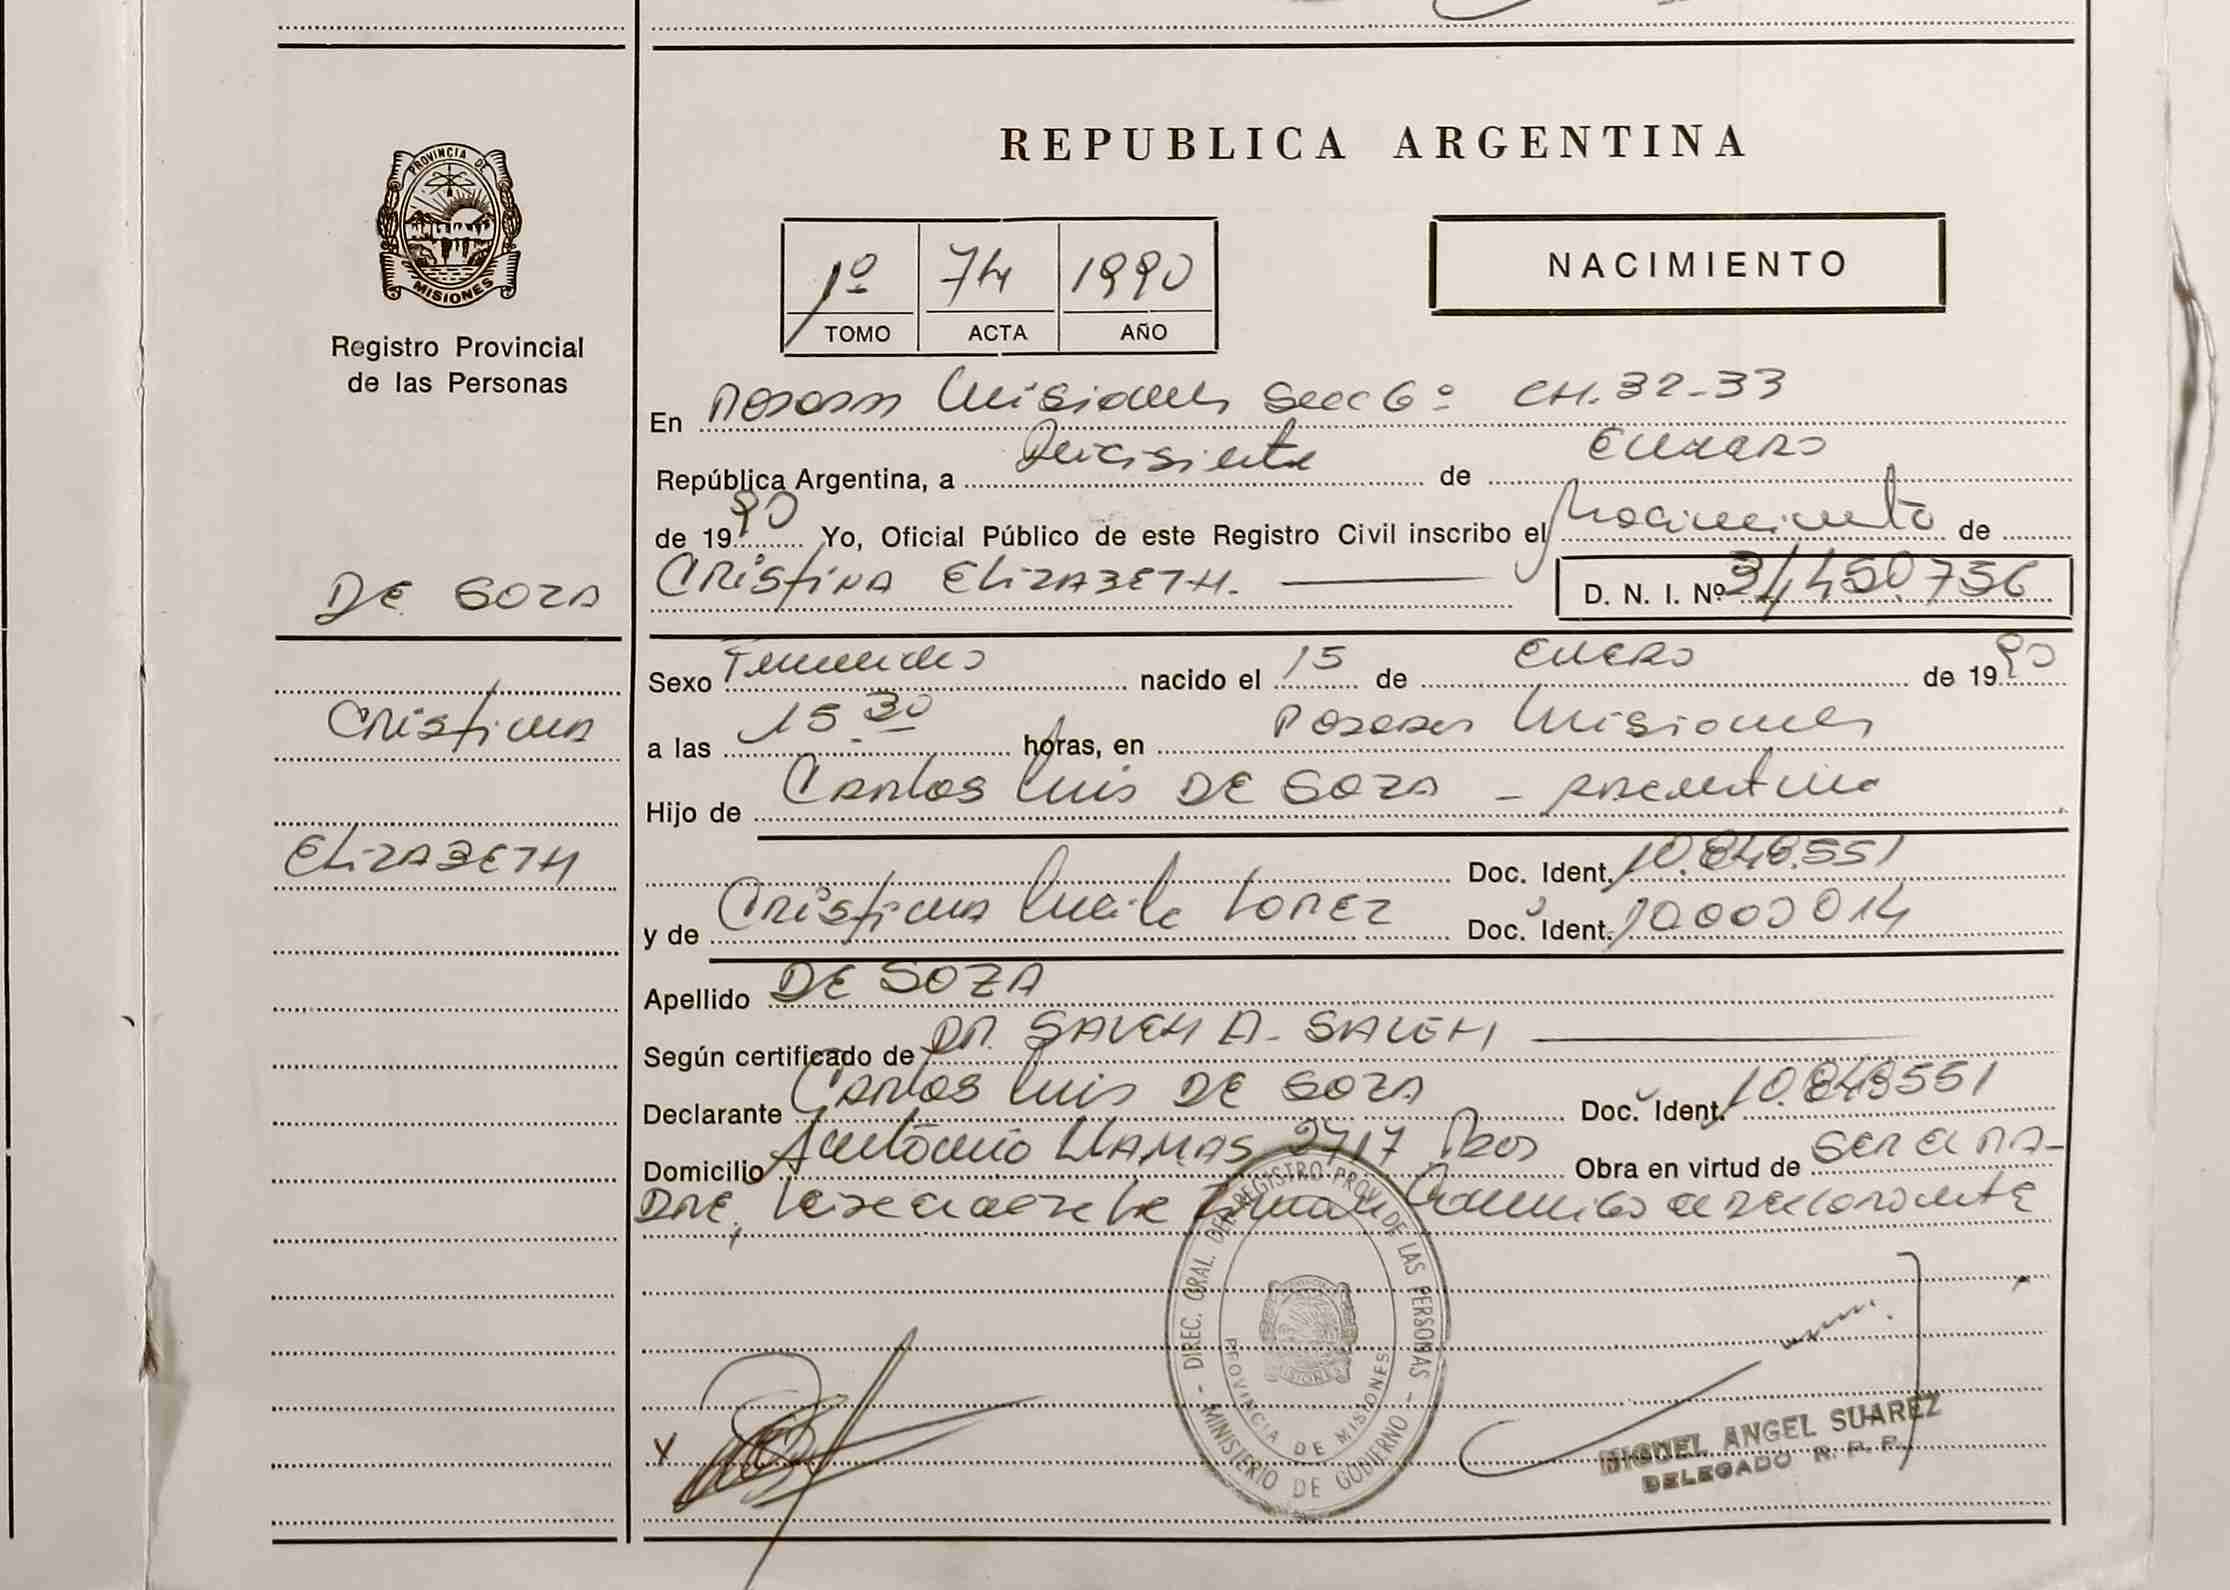 PROVINCIA DE
MISIONES
Registro Provincial
de las Personas
DE SOZA
Cristina
ELIZABETH
REPUBLICA ARGENTINA
1º 74 1990
TOMO ACTA AÑO
NACIMIENTO
En Posadas Misiones Secc 6º CH. 32-33
República Argentina, a Diecisiete de Enero
de 1990 Yo, Oficial Público de este Registro Civil inscribo el Nacimiento de
CRISTINA ELIZABETH. D. N. I. Nº 34.450.756
Sexo Femenino nacido el 15 de Enero de 1990
a las 15.30 horas, en Posadas Misiones
Hijo de Carlos Luis DE SOZA - Argentino
Doc. Ident. 10.848.551
y de Cristina Lopez Doc. Ident.
Apellido DE SOZA
Según certificado de DR. SALEH A. SALEH
Declarante Carlos Luis DE SOZA Doc. Ident. 10.848551
Domicilio Antonio LLAMAS 2717 Pdas Obra en virtud de SER EL PA-
DRE. Leida el acta la firman conmigo el declarante
DIREC. GRAL. DEL REGISTRO PROV. DE LAS PERSONAS
MINISTERIO DE GOBIERNO
PROVINCIA DE MISIONES
MIGUEL ANGEL SUAREZ
DELEGADO R. P. P.